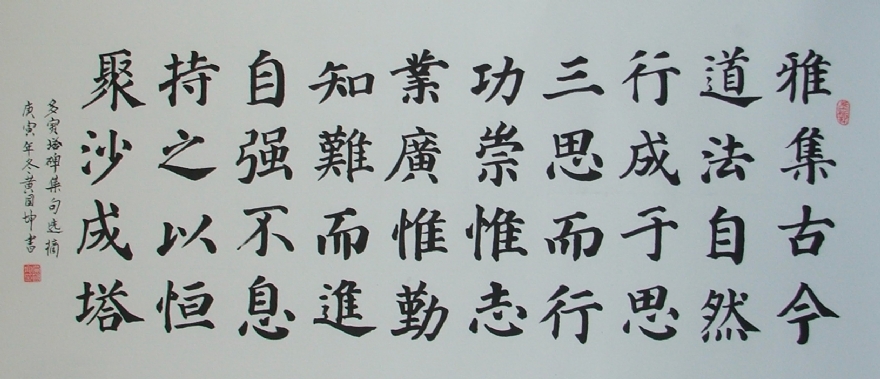 雅集古今
道法自然
行成于思
三思而行
功崇惟志
業廣惟勤
知難而進
自强不息
持之以恒
聚沙成塔
多寳塔碑集句选摘
庚寅年冬黄国坤書